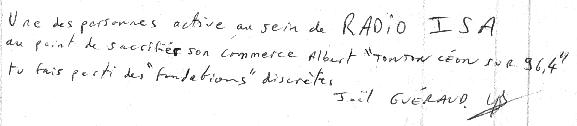 Une des personnes active au sein de RADIO ISA
au point de sacrifier son commerce Albert "TONTON LÉON SUR 96,4"
tu fais parti des "fondations" discrètes
Joël GUÉRAUD.